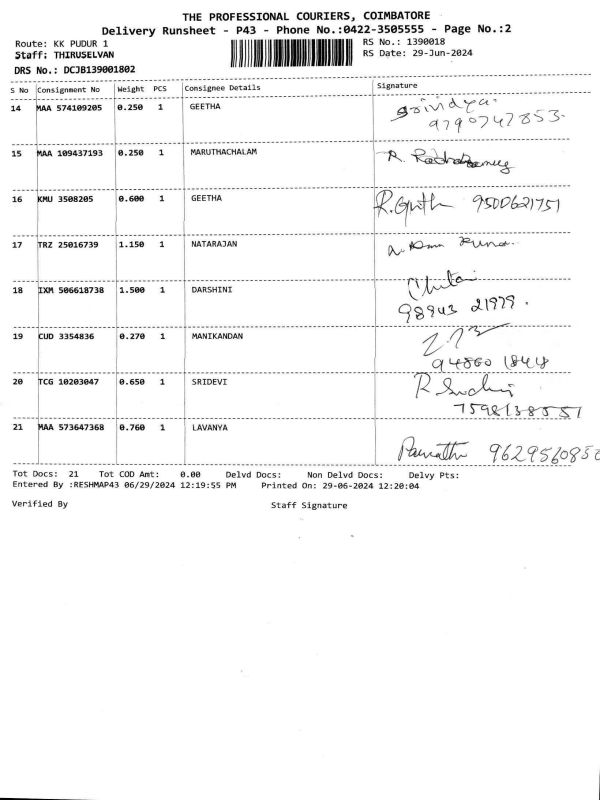 THE PROFESSIONAL COURIERS, COIMBATORE
Delivery Runsheet - P43 - Phone No.:0422-3505555 - Page No.:2
Route: KK PUDUR 1 RS No.: 1390018
Staff: THIRUSELVAN RS Date: 29-Jun-2024
DRS No.: DCJB139001802
S No Consignment No Weight PCS Consignee Details Signature
14 MAA 574109205 0.250 1 GEETHA Srividya.
9790747853.
15 MAA 109437193 0.250 1 MARUTHACHALAM R.
16 KMU 3508205 0.600 1 GEETHA R. 9500621751
17 TRZ 25016739 1.150 1 NATARAJAN
18 IXM 506618738 1.500 1 DARSHINI
98943 21979.
19 CUD 3354836 0.270 1 MANIKANDAN
94860 1848
20 TCG 10203047 0.650 1 SRIDEVI R.
7598138551
21 MAA 573647368 0.760 1 LAVANYA
Tot Docs: 21 Tot COD Amt: 0.00 Delvd Docs: Non Delvd Docs: Delvy Pts:
Entered By :RESHMAP43 06/29/2024 12:19:55 PM Printed On: 29-06-2024 12:20:04
Verified By Staff Signature